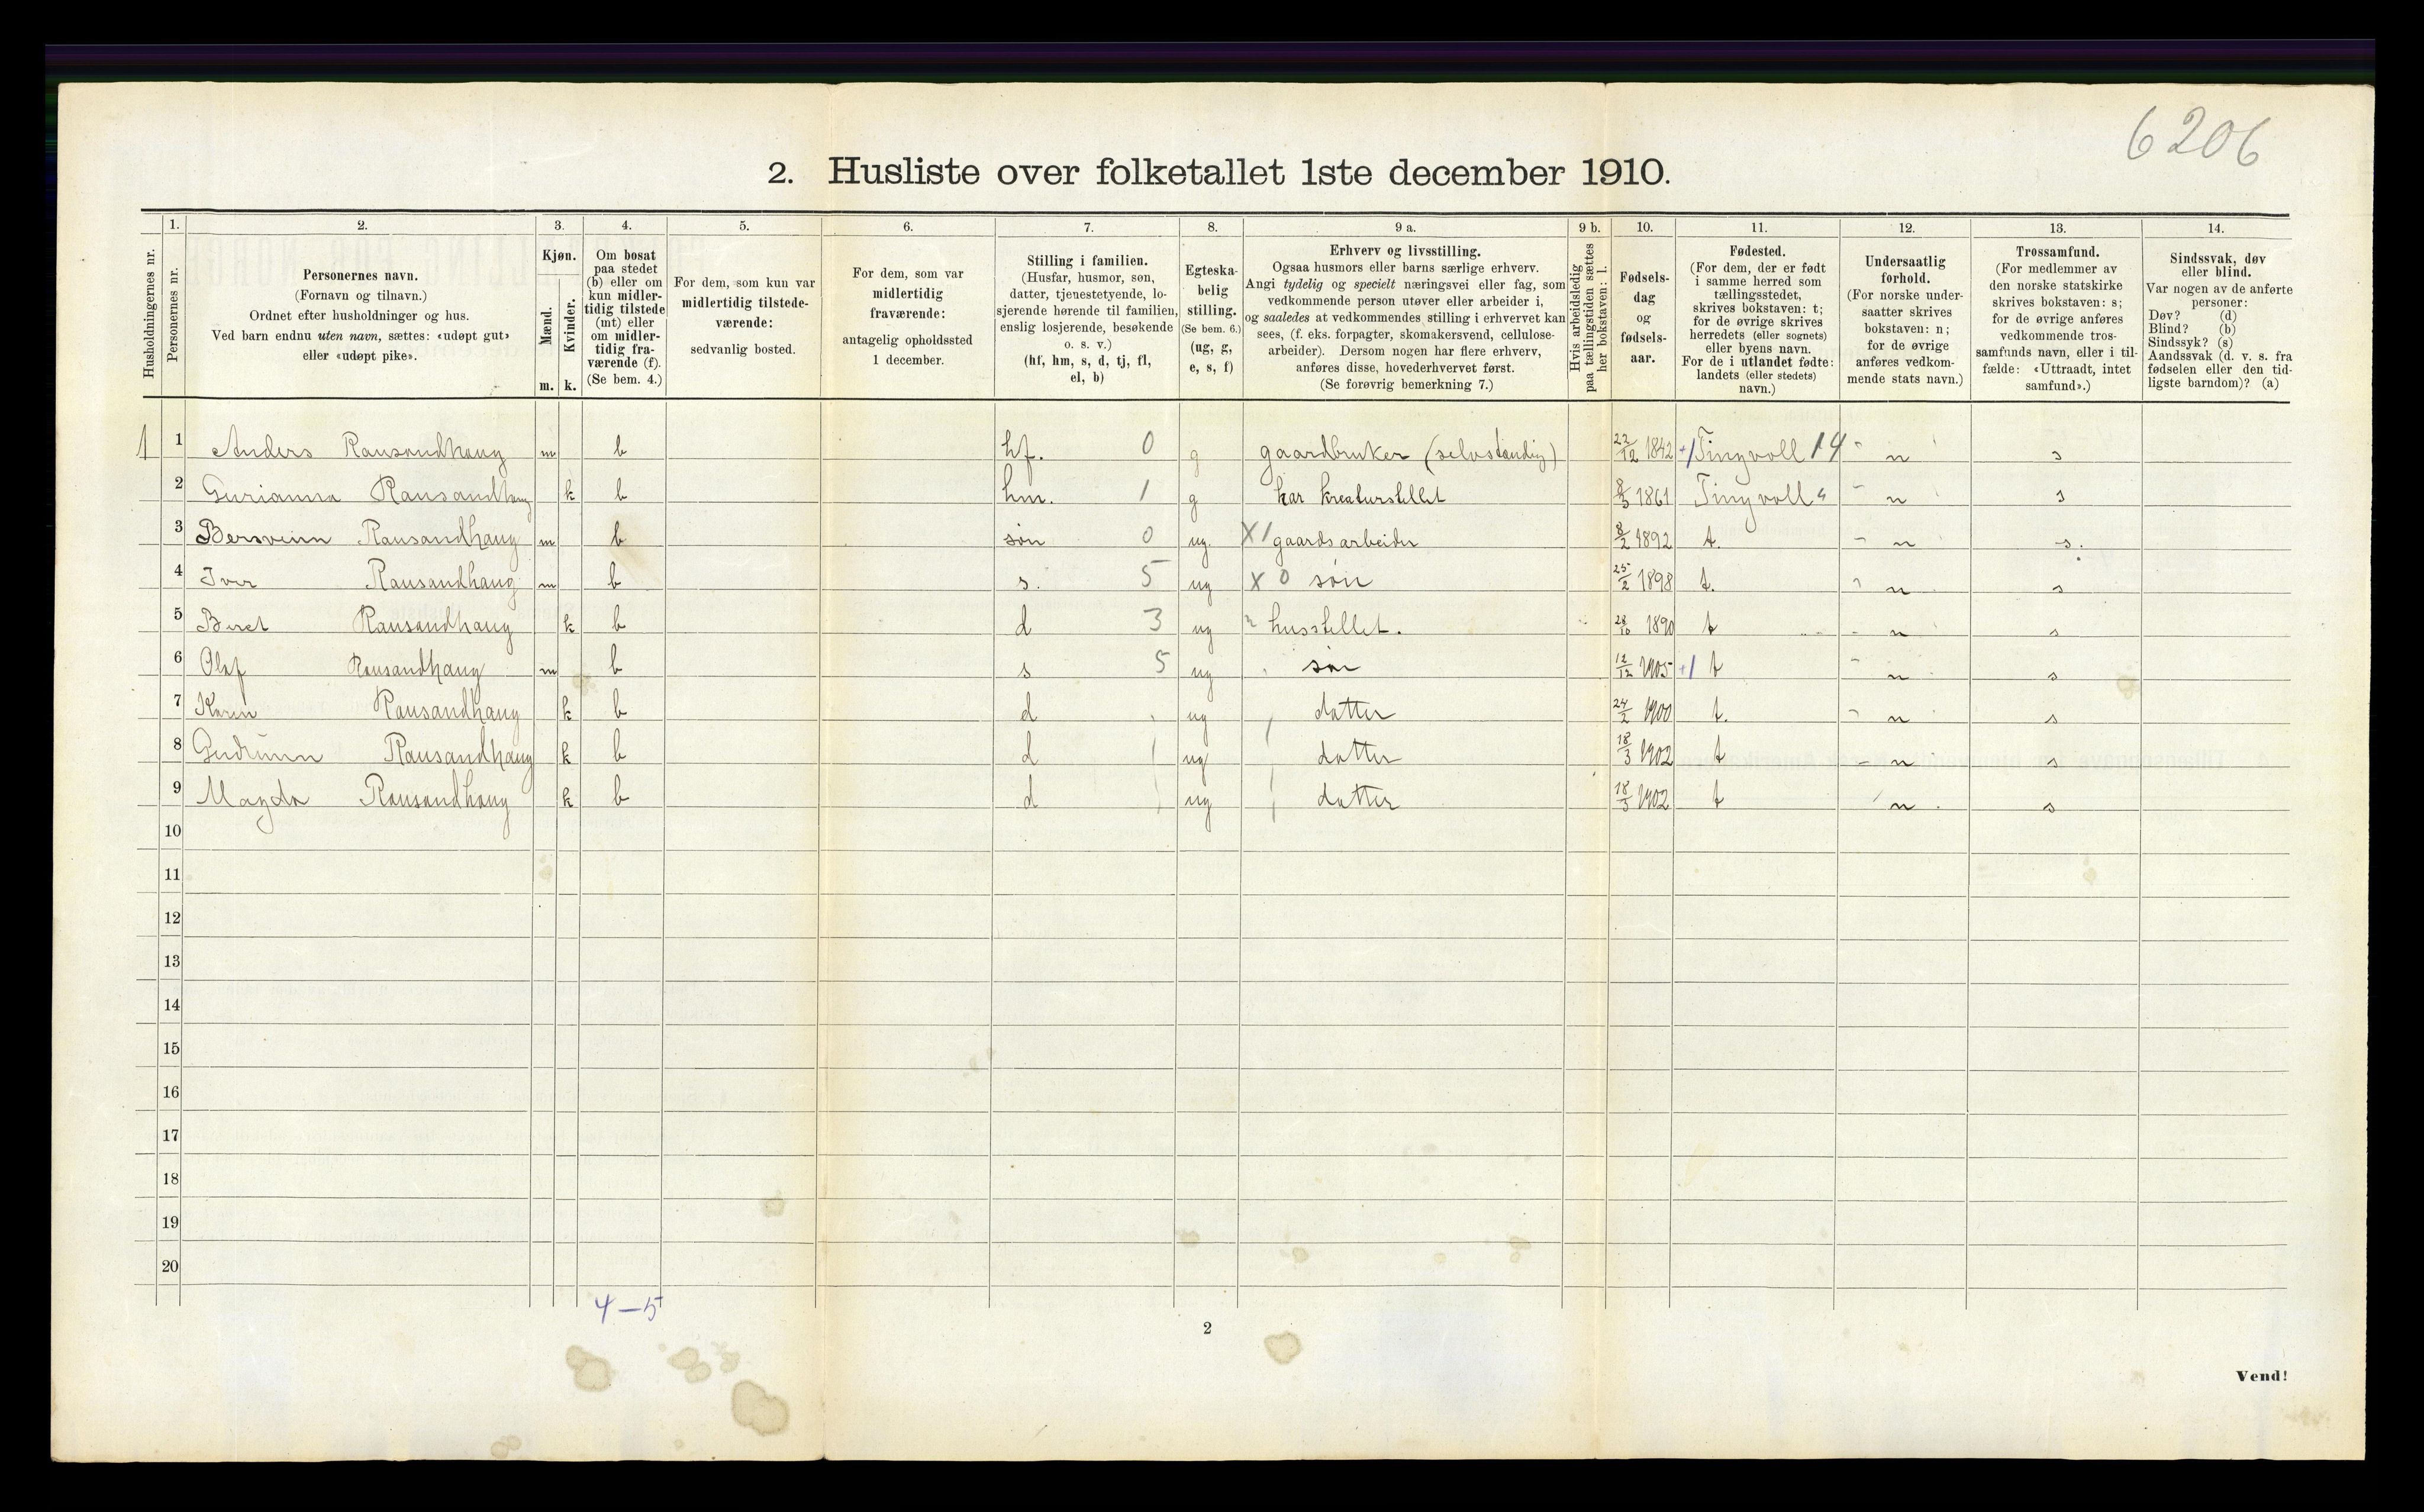 6206
2. Husliste over folketallet 1ste december 1910.
Husholdningernes nr.
1. Personernes nr.
2. Personernes navn.
(Fornavn og tilnavn.)
Ordnet efter husholdninger og hus.
Ved barn endnu uten navn, sættes: «udøpt gut»
eller «udøpt pike».
3. Kjøn.
Mænd. m.
Kvinder. k.
4. Om bosat
paa stedet
(b) eller om
kun midler-
tidig tilstede
(mt) eller
om midler-
tidig fra-
værende (f).
(Se bem. 4.)
5. For dem, som kun var
midlertidig tilstede-
værende:
sedvanlig bosted.
6. For dem, som var
midlertidig
fraværende:
antagelig opholdssted
1 december.
7. Stilling i familien.
(Husfar, husmor, søn,
datter, tjenestetyende, lo-
sjerende hørende til familien,
enslig losjerende, besøkende
o. s. v.)
(hf, hm, s, d, tj, fl,
el, b)
8. Egteska-
belig
stilling.
(Se bem. 6.)
(ug, g,
e, s, f)
9 a. Erhverv og livsstilling.
Ogsaa husmors eller barns særlige erhverv.
Angi tydelig og specielt næringsvei eller fag, som
vedkommende person utøver eller arbeider i,
og saaledes at vedkommendes stilling i erhvervet kan
sees, (f. eks. forpagter, skomakersvend, cellulose-
arbeider). Dersom nogen har flere erhverv,
anføres disse, hovederhvervet først.
(Se forøvrig bemerkning 7.)
9 b. Hvis arbeidsledig
paa tællingstiden sættes
her bokstaven: l.
10. Fødsels-
dag
og
fødsels-
aar.
11. Fødested.
(For dem, der er født
i samme herred som
tællingsstedet,
skrives bokstaven: t;
for de øvrige skrives
herredets (eller sognets)
eller byens navn.
For de i utlandet fødte:
landets (eller stedets)
navn.)
12. Undersaatlig
forhold.
(For norske under-
saatter skrives
bokstaven: n;
for de øvrige
anføres vedkom-
mende stats navn.)
13. Trossamfund.
(For medlemmer av
den norske statskirke
skrives bokstaven: s;
for de øvrige anføres
vedkommende tros-
samfunds navn, eller i til-
fælde: «Uttraadt, intet
samfund».)
14. Sindssvak, døv
eller blind.
Var nogen av de anførte
personer:
Døv? (d)
Blind? (b)
Sindssyk? (s)
Aandssvak (d. v. s. fra
fødselen eller den tid-
ligste barndom)? (a)
1 1 Anders Rausandhaug m b hf. 0 g gaardbruker (selvstændig) 22/12 1842 +1 Tingvoll 14 n s
2 Gurianna Rausandhaug k b hm. 1 g har kreaturstellet 8/3 1861 Tingvoll " n s
3 Bersvenn Rausandhaug m b søn 0 ug. X1 gaardsarbeider 8/2 1892 t. n s.
4 Iver Rausandhaug m b s. 5 ug X 0 søn 25/2 1898 t. n s
5 Beret Rausandhaug k b d 3 ug husstellet. 28/10 1890 t n s
6 Olaf Rausandhaug m b s 5 ug søn 12/12 1905 +1 t n s
7 Karen Rausandhaug k b d ug datter 24/2 1900 t. n s
8 Gudrunn Rausandhaug k b d ug datter 18/3 1902 t n s
9 Magda Rausandhaug k b d ug datter 18/3 1902 t n s
10
11
12
13
14
15
16
17
18
19
20
4–5
2
Vend!